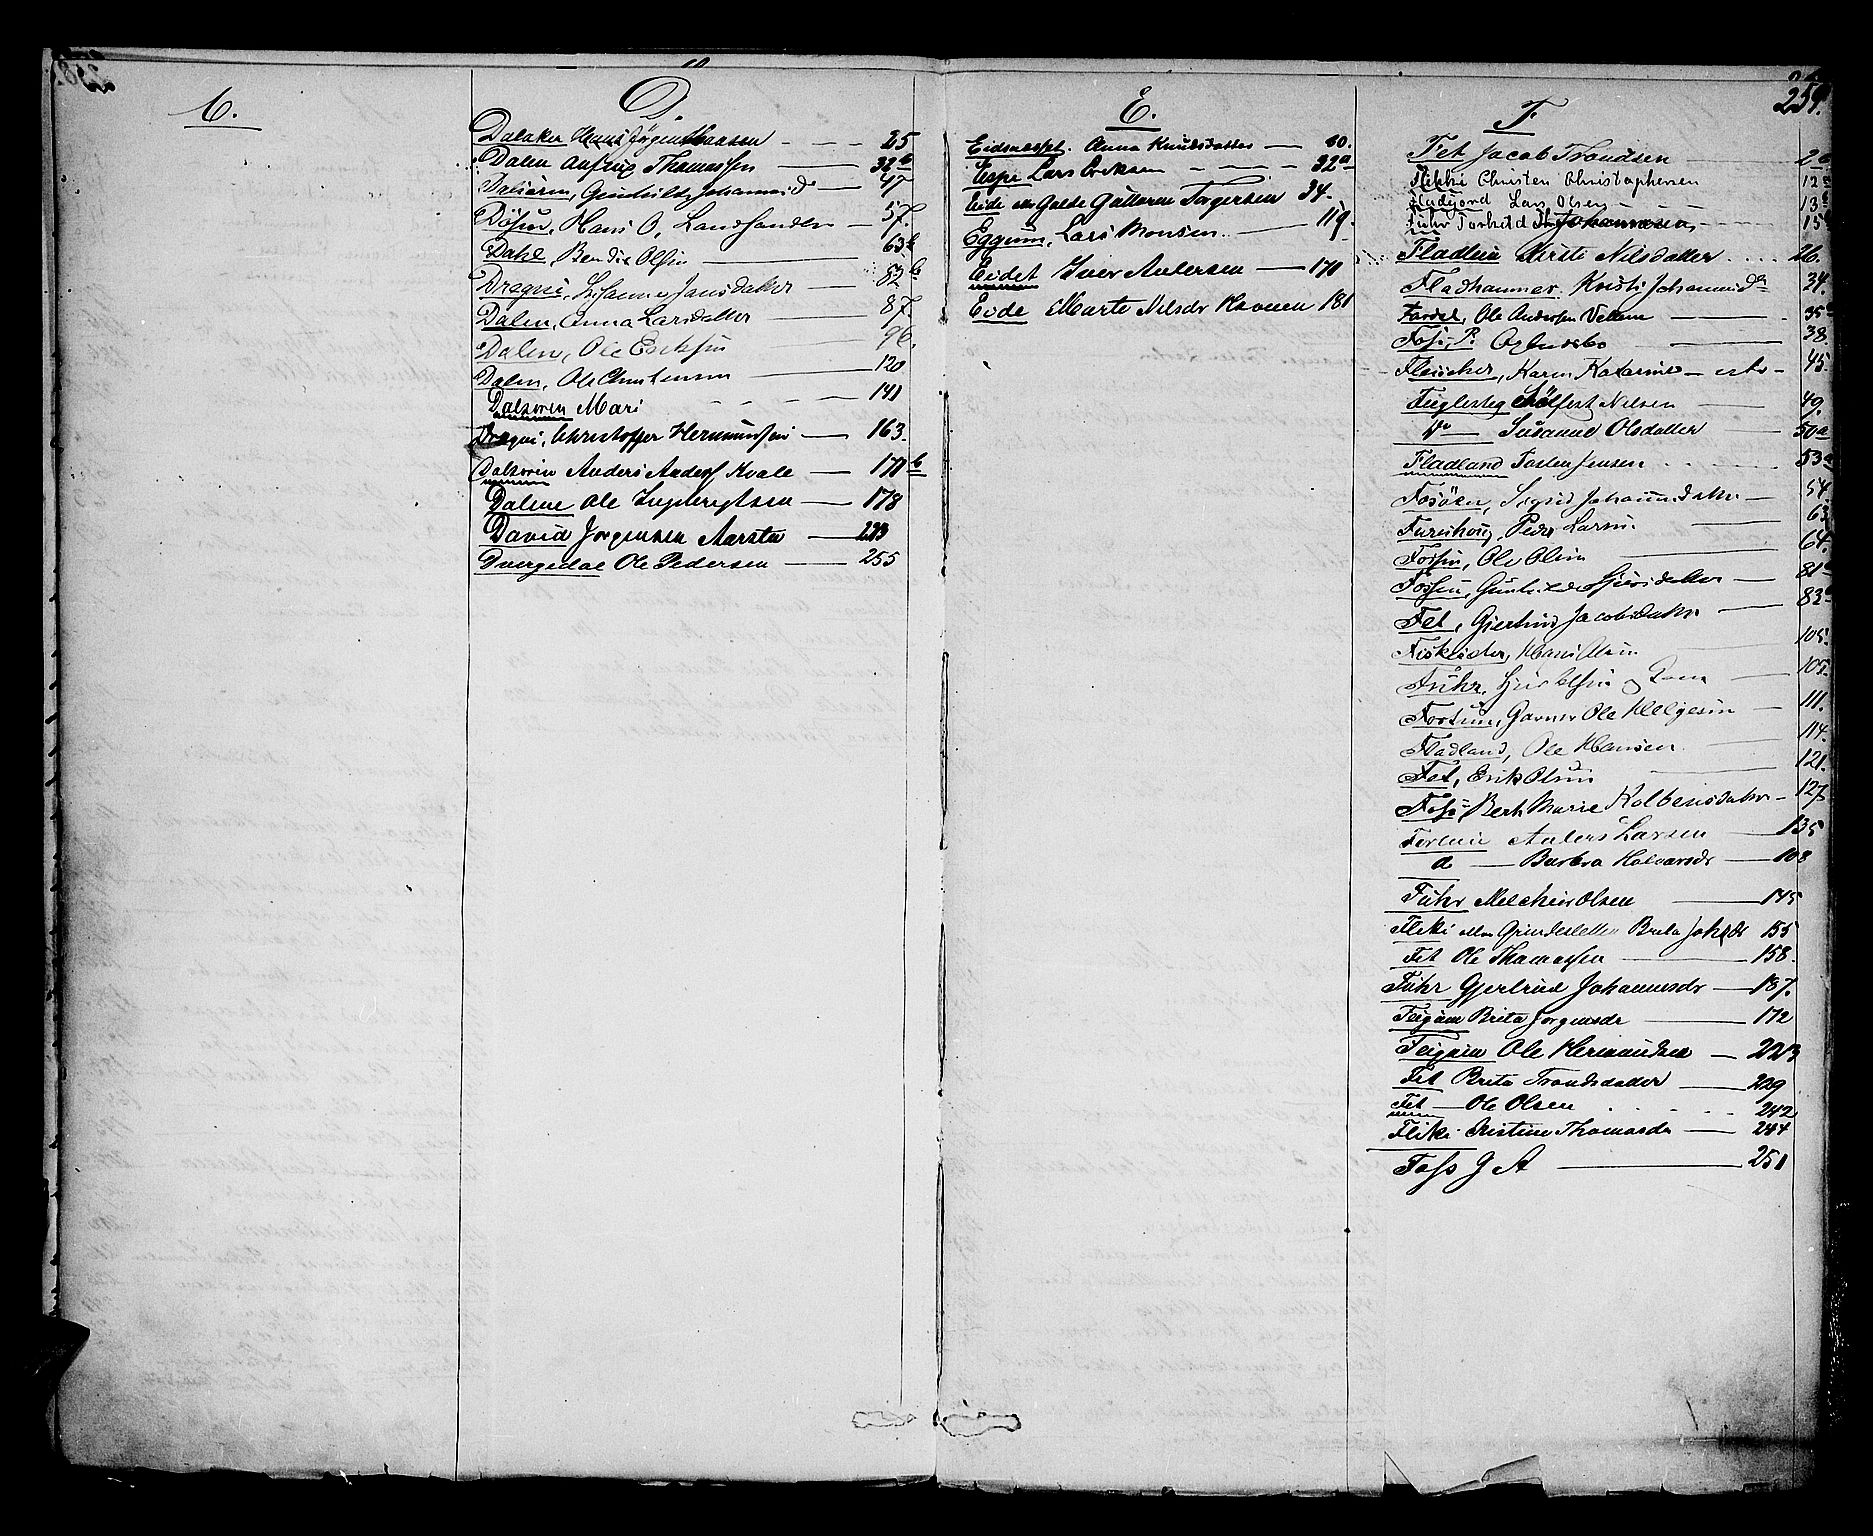 C.
D.
Dalaker Hans Jörgen Hansen 25
Dalen Anfind Thomassen 32b
Dalsören, Gunhild Johannisdr 47
Dösen, Hans O. Landhandler 57.
Dahl, Bendix Olsen 63b
Dregni, Susanne Jansdatter 82b
Dalen, Anna Larsdatter 87.
Dalen, Ole Eriksen 96.
Dalen, Ole Christensen 120
Dalsøren Mari 141
Dregni, Christoffer Hermundsen 163.
Dalsøren Anders Anders. Kvale 171b
Dalene Ole Ingebrigtsen 178
David Jorgensen Aarstein 223
Dvergedal Ole Pedersen 255
E.
Eidsnæsset. Anna Knudsdatter 30.
Espe Lars Eriksen 32a
Eide Guttorm Torgersen 34.
Eggum, Lars Monsen 119.
Eidet Iver Andersen 170
Eide Marte Nilsdr Kroken 181
259.
F
Fet Jacob Trondsen 2a
Flekke Christen Christophersen 12a
Fladjord Lars Olsen 13a
Fuhr Torkild Johannesen 15a
Fladlein Kirsti Nilsdatter 26.
Fladhammer. Kristi Johannisdr 34.
Fardal, Ole Andersen 35a
Foss, P. 38.
Fleischer, Karen Katarine 45.
Fuglesteg Sölfest Nilsen 49.
Do — Susanne Olsdatter 50a
Fladland Tosten Jensen 53a
Fosören, Sigrid Johannisdatter 54.
Fureskoug, Peder Larsen 63.
Fossen, Ole Olsen 64.
Fossen, Gunhild Sjursdatter 81a
Fet, Gjertrud Jacobsdatter 83a
Hans Olsen 105.
Fuhr, og Kone 105.
Fortun, Garver Ole Helgesen 111.
Fladland, Ole Hansen 114.
Fet, Erik Olsen 121.
Foss Berth Marie Kolbensdatter 127.
Forluin Anders Larsen 135
do — Barbra Halvarsdr 108
Fuhr Melchior Olsen 145
Flikki Brita Johsdr 155
Fet Ole Thomassen 158.
Fuhr Gjertrud Johannesdr 187.
Feigum Brita Jorgensdr 172
Feigum Ole Hermundsen 223
Fet Brita Trondsdatter 229
Fet — Ole Olsen 242
Flikki Kristine Thomasdr 244
Foss J A 251